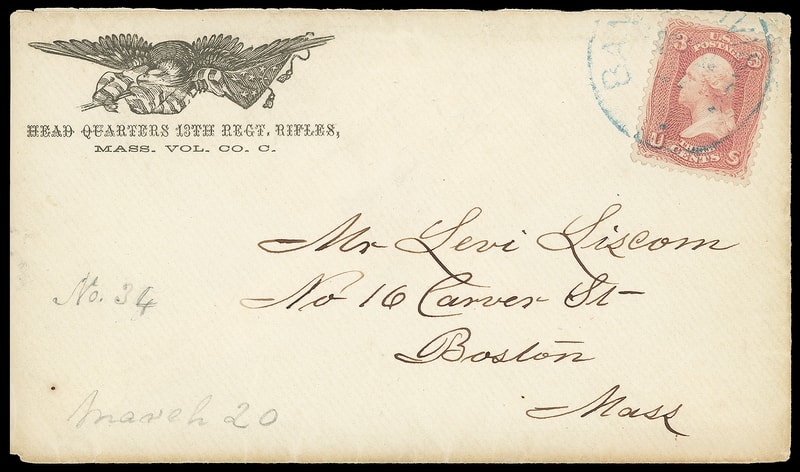 HEAD QUARTERS 13TH REGT. RIFLES,
MASS. VOL. CO. C.
BAL
3 U.S. 3
POSTAGE
THREE
U CENTS S
Mr Levi Liscom
No 16 Carver St
Boston
Mass
No. 34
March 20